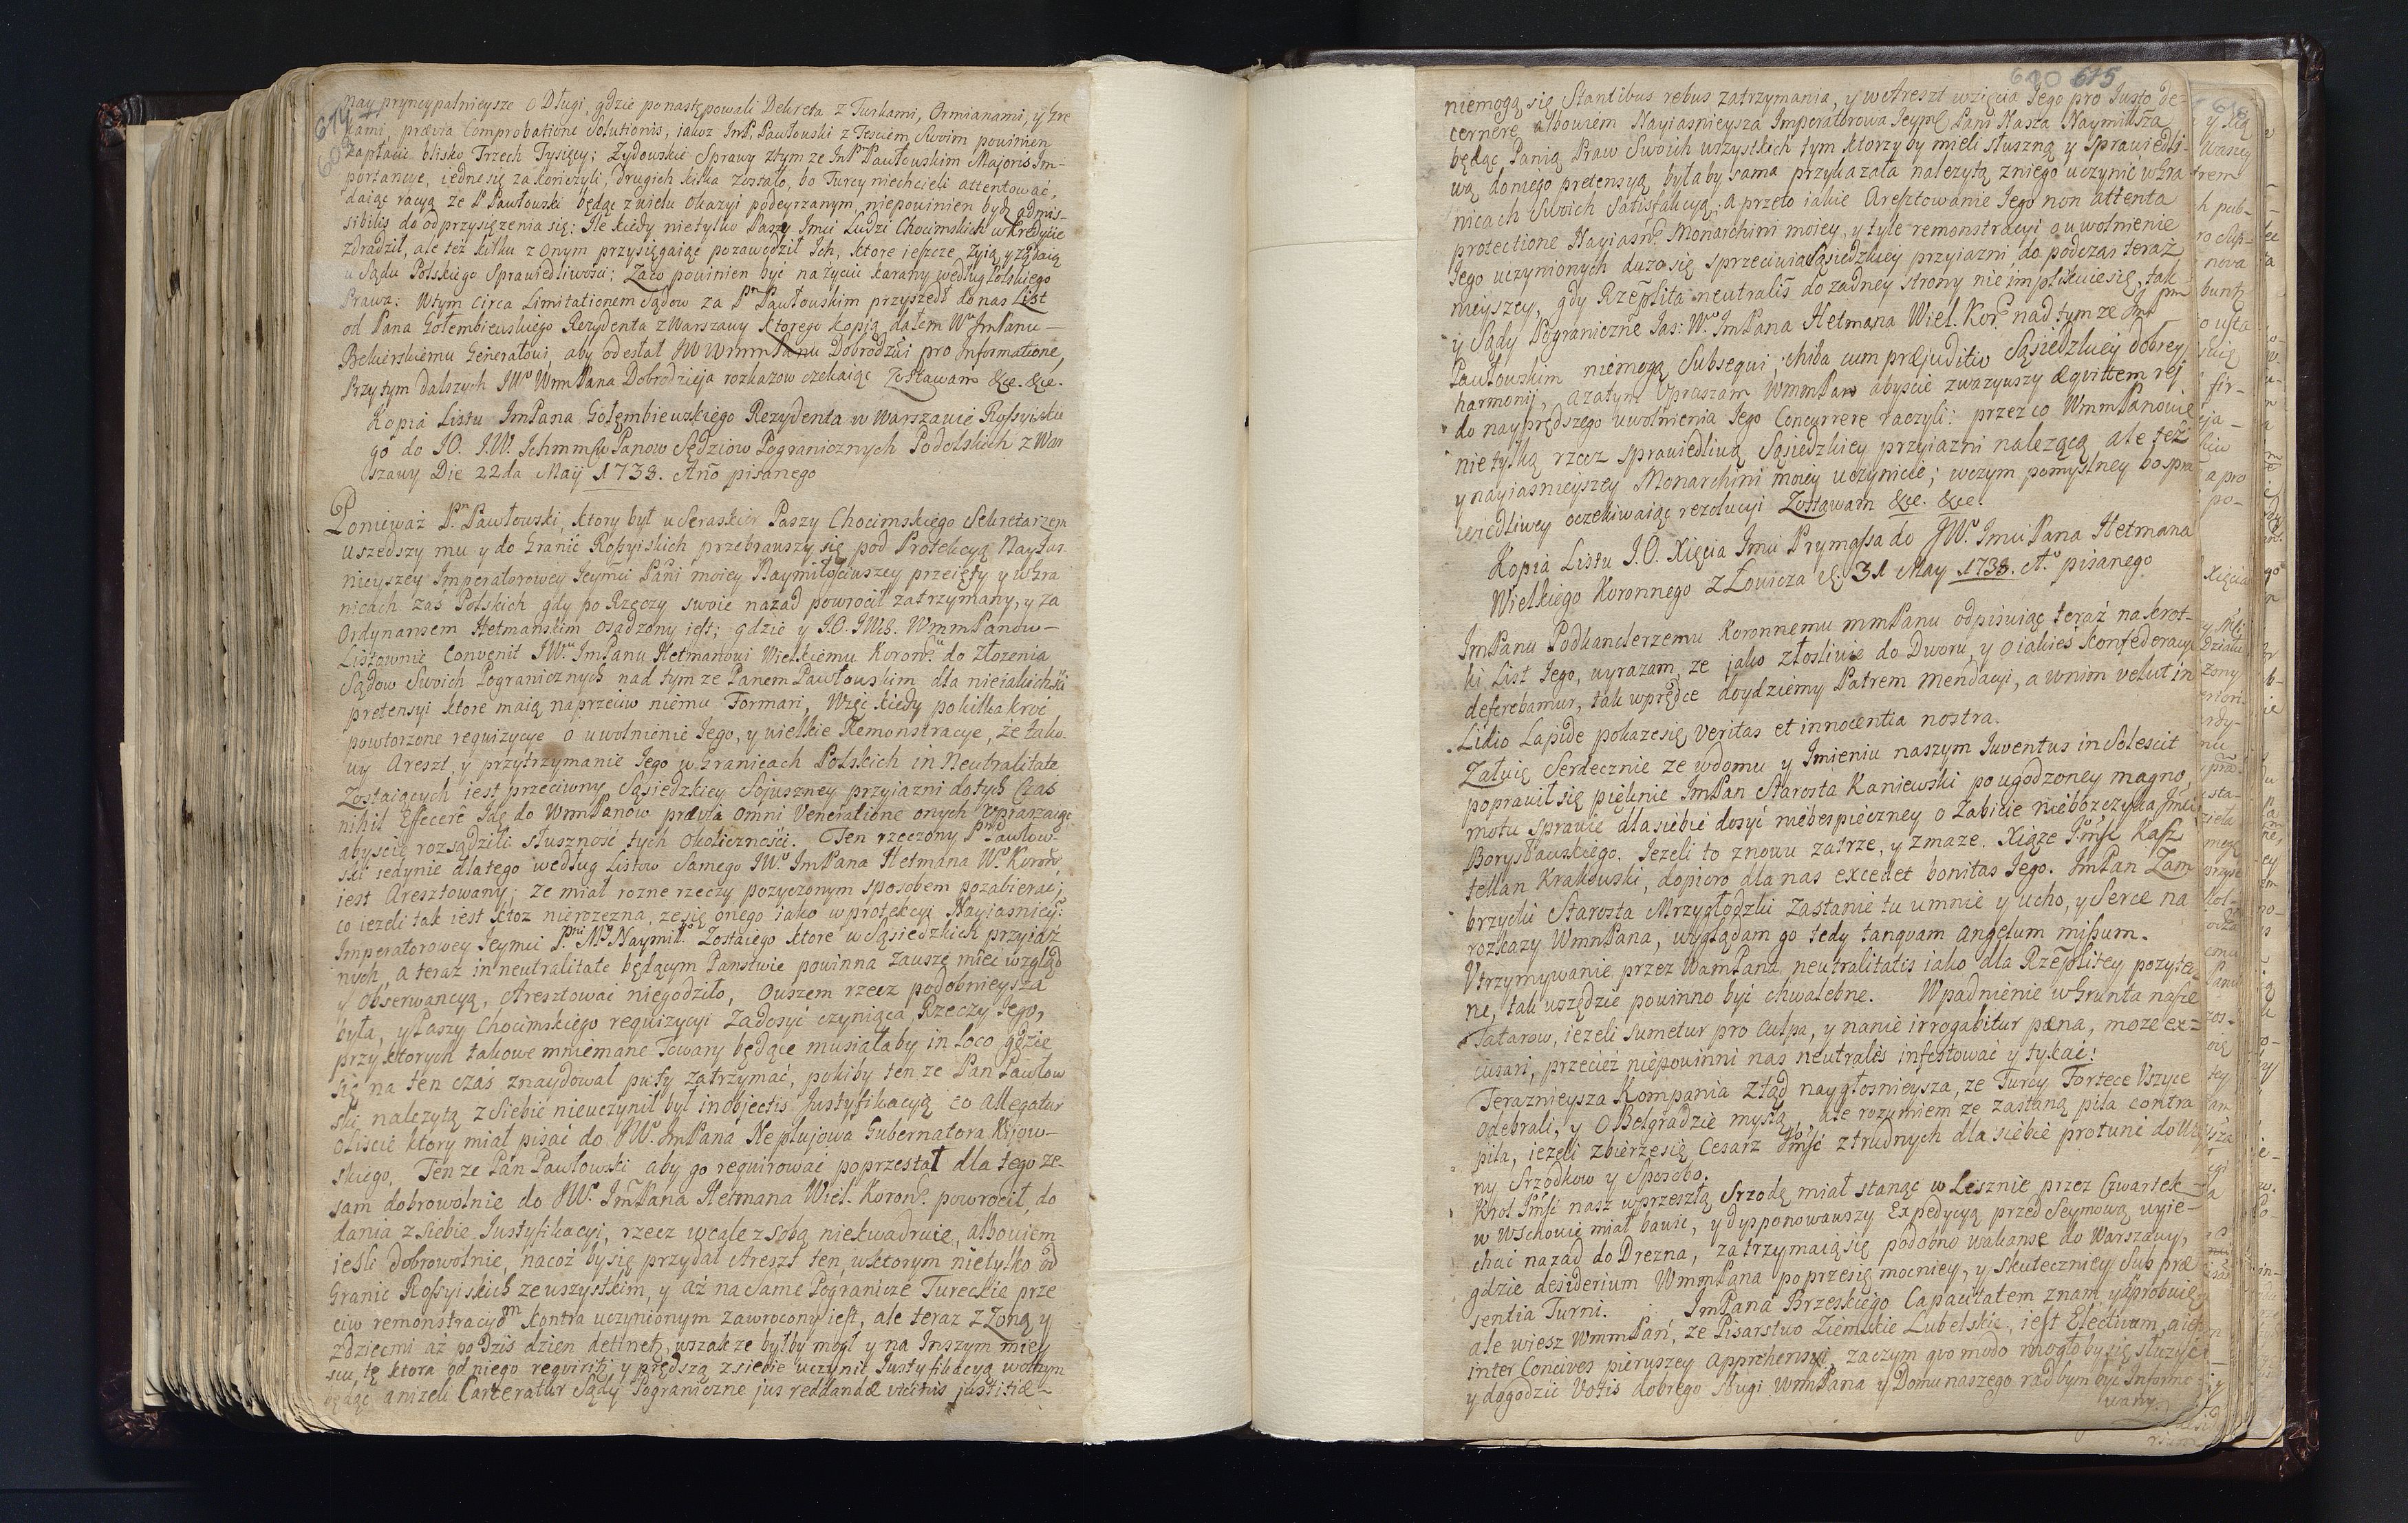 614
609
nay pryncypalnieysze o Długi, gdzie ponastępowali Dekreta z Turkami, Ormianami, y Gre
kami, prævia Comprobatione Solutionis, iakoz ImP. Pawłouski z Tesciem Swoim powinien
zapłacic blisko Trzech Tysięcy; Zydowskie Sprawy ztym ze ImPm Pawłouskim Majoris Im-
portancye, iedne są zakończyli, drugich kilka zostało, bo Turcy niechcieli attentować,
daiąc racyą ze P. Pawłouski będąc zwielu Okazyi podeyrzanym, niepowinien bydz admis-
sibilis do odprzysięzenia się: Ile kiedy nietylko Paszy Jmci Ludzi Chocimskich wkredycie
zdradził, ale też kilku z onym przysięgaiąc pozawodził Ich, ktore ieszcze żyią, y żądaią
u Sądu Polskiego Sprawiedliwości; Zaco powinien być na życiu karany według Polskiego
Prawa: Wtym circa Limitationem Sądow za Pm Pawłouskim przyszedł do nas List
od Pana Gołembiewskiego Rezydenta z Warszawy ktorego kopią dałem Wu ImPanu-
Bekierskiemu Generałowi, aby odesłał JW WmmPanu Dobrodzi pro Informatione,
Przytym dalszych JWo WmPana Dobrodzieja rozkazow czekaiąc Zostawam &c. &c.
Kopia Listu ImPana Gołęmbiewskiego Rezydenta w Warszawie Rossyiskie
go do JO. J.W. Ichmm Panow Sędziow Pogranicznych Podolskich z War
szawy Die 22da Maij 1738. Ano pisanego
Ponieważ Pn Pawłowski, ktory był u Seraskier Paszy Chocimskiego Sekretarzem
uszedszy mu y do Granic Rossyiskich przebrauszy się pod Protekcyą Nayias-
nieyszey Imperatorowey Jeymci Pani moiey Naymiłościwszey przeięty y w Gra
nicach zaś Polskich gdy po Rzeczy swoie nazad powrocił zatrzymany, y za
Ordynansem Hetmanskim osądzony iest; gdzie y J.O. JWW. WmmPanow-
Listownie Convenit JWu ImPanu Hetmanowi Wielkiemu Koronu do Złożenia
Sądow Swoich Pogranicznych nad tym ze Panem Pawłouskim dla nieiakichsi
pretensyi ktore maią naprzeciw niemu Formari, Więc kiedy pokilkakroć
powtorzone requizycye o uwolnienie Iego, y wielkie Remonstracye, że tako
wy Areszt, y przytrzymanie Iego w Granicach Polskich in Neutralitate
Zostaiących iest przeciwny Sąsiedzkiey Sojuszney przyiazni dotych czas
nihil Effecere Idę do WmPanow prævia omni Veneratione onych upraszaiąc
abyscie rozsądzili słuszność tych okoliczności. Ten rzeczony Pn Pawłow-
ski iedynie dlatego według Listow Samego JWo ImPana Hetmana Wo Koron
iest Aresztowany; ze miał rozne rzeczy pozyczonym sposobem pozabierać;
co iezeli tak iest ktoz nierzezna, ze się onego iako w protekcyi Nayiasniey:
Imperatorowey Jeymci Pni My Naymil: Zostaiego ktore w sąsiedzkich przyiaz
nych, a teraz in neutralitate będącym Panstwie powinna Zausze miec wzgląd
y Obserwancyą, Aresztowac niegodziło, Ouszem rzecz podobnieysza
była, y Paszy Chocimskiego requizycyi Zadosyć czyniąca, Rzeczy Iego,
przy ktorych takowe mniemane Towary będące musiałaby in Loco gdzie
się na ten czas znaydował puty zatrzymać, pokiby ten ze Pan Pawłow
ski należytą z Siebie nieuczynił był in objectis Justyfikacyą co Allegatur
o liscie ktory miał pisać do JWo ImPana Neplujowa Gubernatora Kijow-
skiego, Tenze Pan Pawłowski aby go requirować poprzestał dla tego ze-
sam dobrowolnie do JWo ImPana Hetmana Wiel. Koron. powrocił, do
dania z siebie Justyfikacyi, rzecz wcale z sobą niekwadruie, albowiem
ieśli dobrowolnie, nacoż by się przydał Areszt ten, w ktorym nietylko od
Granic Rossyiskich ze wszystkim, y aż na Same Pogranicze Tureckie prze
ciw remonstracyom kontra uczynionym zawrocony iest, ale teraz z Zoną y
zdziecmi aż po Dzis dzien detinetr, wszakze byłby mogł y na Inszym miey
scu, tę ktora od niego requiritr y prędszą z siebie uczynic Justyfikacyą wolnym
będąc anizeli Carceratur Sądy Pograniczne jus reddandæ vicinis justitiæ-
610 615
niemogą się Stantibus rebus zatrzymania, y w Areszt wzięcia Jego pro Iusto de-
cernere, albowiem Nayiasnieysza Imperatorowa Jeymć Pani Nasza Naymilsza
będąc Panią Praw Swoich uszystkich tym ktorzy by mieli słuszną y sprawiedli-
wą doniego pretensyą byłaby sama przykazała nalezytą zniego uczynić w Gra
nicach Swoich Satisfakcyą; a przeto iakie Aresztowanie Jego non attenta
protectione Nayiasn: Monarchini moiey, y tyle remonstracyi o uwolnienie
Jego uczynionych duzo się sprzeciwia Sąsiedzkiey przyiazni do podczas teraz
nieyszey, gdy Rzeplita neutralis do zadney strony nieimplikuie się, tak
y Sądy Pograniczne Jas: Wo ImPana Hetmana Wiel. Kor: nad tym ze Im Pm
Pawłouskim niemogą Subsequi, chiba cum præjuditio Sąsiedzkiey dobrey
harmonij, azatym Upraszam WmmPanw abyście zwazyuszy æqvittem rej
do nayprędszego uwolnienia Jego Concurrere raczyli: przez co WmmPanowie
nietylką rzecz sprawiedliwą Sąsiedzkiey przyiazni nalezącą ale też
y nayiasnieyszey Monarchini moiey uczynicie; wczym pomyslney bo spra
wiedliwey oczekiwaiąc rezolucyi Zostawam &c. &c.
Kopia Listu J.O. Xięcia Jmci Prymassa do JWo. Jmci Pana Hetmana
Wielkiego Koronnego z Łowicza d. 31 May 1738. Ao pisanego
ImPanu Podkanclerzemu Koronnemu mmPanu odpisuiąc teraz na krot-
ki List Jego, wyrazam, ze jako złosliwie do Dworu, y o iakies Konfederacye
deferebamur, tak wprędce doydziemy Patrem mendacyi, a wnim velut in
Lidio Lapide pokaze się Veritas et innocentia nostra.
Załuię Serdecznie ze wdomu y Imieniu naszym Iuventus in Solescit
poprawił się pięknie ImPan Starosta Kaniewski po ugodzoney magno
motu sprawie dla siebie dosyć niebespieczney o Zabicie nieboszczyka Jmci
Borysławskiego. Jezeli to znowu zatrze, y zmaze. Xiąze Jmść Kasz
tellan Krakowski, dopiero dla nas excedet bonitas Jego. ImPan Zam
brzycki Starosta Mrzygłodzki Zastanie tu umnie y ucho, y Serce na
rozkazy WmnPana, wyglądam go tedy tanqvam angelum missum.
Vtrzymywanie przez WamPana neutralitatis iako dla Rzeplitey pozytecz
ne, tak uszędzie powinno być chwalebne. Wpadnienie w Grunta nasze
Tatarow, iezeli sumetur pro culpa, y nanie irrogabitur pæna, moze ex-
cusari, przeciez niepowinni nas neutrales infestować y tykać:
Teraznieysza Kompania ztąd naygłosnieysza, ze Turcy Fortece Uszyce
odebrali, y o Belgradzie myslą, ale rozumiem ze zastaną pila contra
pila, iezeli zbierze się Cesarz Jmść ztrudnych dla siebie protunc do Woy
ny Srzodkow y Sposobo.
Krol Jmść nasz wprzeszłą Srzodę miał stanąc w Lesznie przez Czwartek-
w Wschowie miał bawic, y dysponowawszy Expedycyą przed Seymową wyie-
chać nazad do Drezna, zatrzymaią się podobno wakanse do Warszawy,
gdzie desiderium WmmPana poprze się mocniey, y skuteczniey Sub præ
sentia Turni. ImPana Brzeskiego Capacitatem znam y approbuię
ale wiesz WmmPan, ze Pisarstwo Ziemskie Lubelskie, iest Electivum, a ich
inter Concives pieruszey apprehensyi, zaczym qvo modo mogłoby się służyć
y dogodzic Votis dobrego Sługi WmPana y Domu naszego radbym byc Informo
wany.